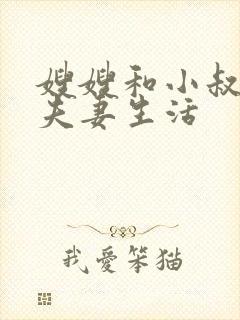 嫂嫂和小叔
夫妻生活
我爱笨猫